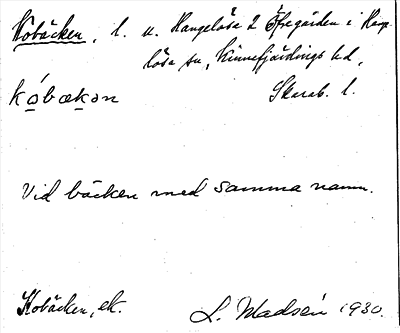 Kobäcken, l. u. Hangelösa 2 Öfregården i Hange-
lösa sn, Kinnefjärdings hd,
kóbækən Skarab. l.
Vid bäcken med samma namn.
Kobäcken, ek. L. Madsén 1930.